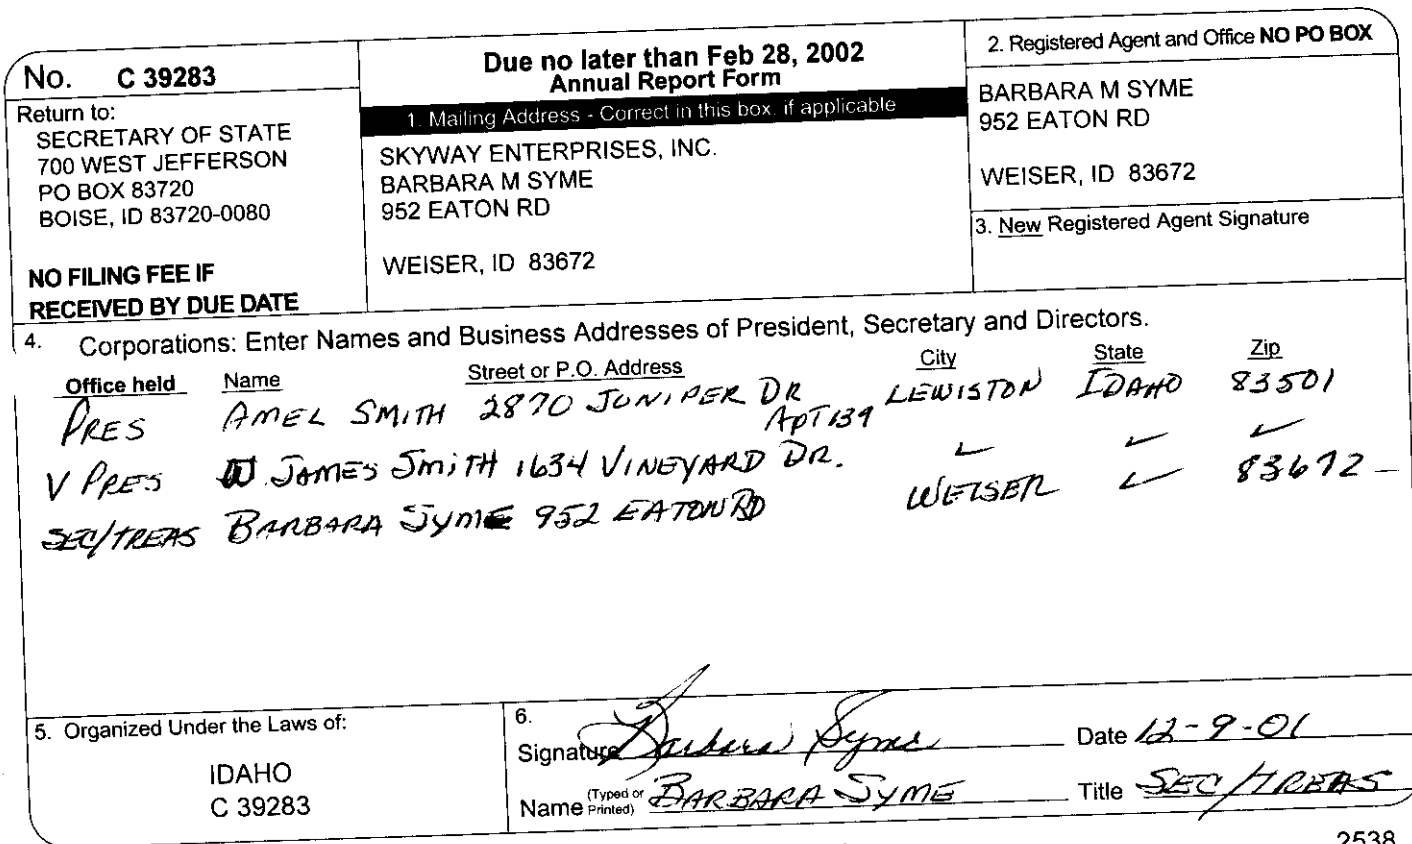 No. C 39283
Return to:
SECRETARY OF STATE
700 WEST JEFFERSON
PO BOX 83720
BOISE, ID 83720-0080
NO FILING FEE IF
RECEIVED BY DUE DATE
Due no later than Feb 28, 2002
Annual Report Form
1. Mailing Address - Correct in this box, if applicable
SKYWAY ENTERPRISES, INC.
BARBARA M SYME
952 EATON RD
WEISER, ID 83672
2. Registered Agent and Office NO PO BOX
BARBARA M SYME
952 EATON RD
WEISER, ID 83672
3. New Registered Agent Signature
4. Corporations: Enter Names and Business Addresses of President, Secretary and Directors.
Office held Name Street or P.O. Address City State Zip
PRES AMEL SMITH 2870 JUNIPER DR LEWISTON IDAHO 83501
APT 139
V PRES W. JAMES SMITH 1634 VINEYARD DR. ✓ ✓ ✓
SEC/TREAS BARBARA SYME 952 EATON RD WEISER ✓ 83672 –
5. Organized Under the Laws of:
IDAHO
C 39283
6.
Signature Barbara Syme Date 12-9-01
Name (Typed or Printed) BARBARA SYME Title SEC/TREAS
2538